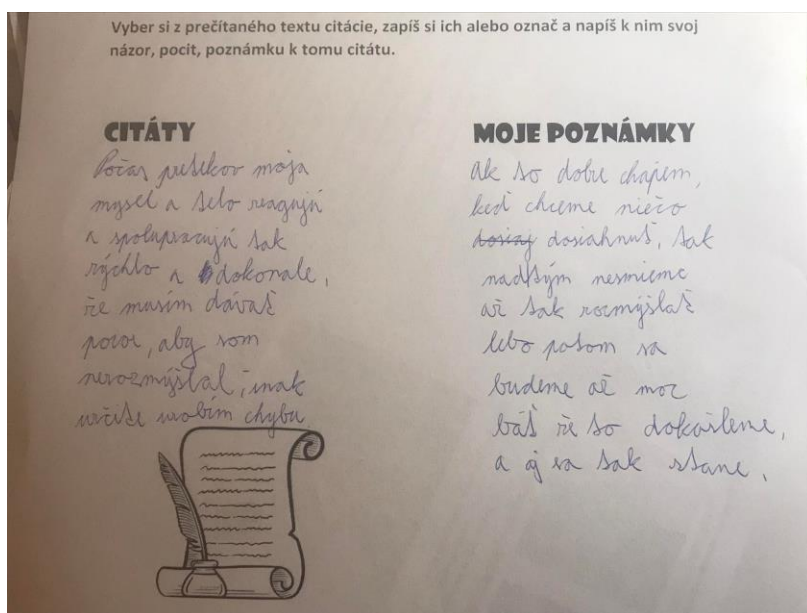 Vyber si z prečítaného textu citácie, zapíš si ich alebo označ a napíš k nim svoj
názor, pocit, poznámku k tomu citátu.
CITÁTY
Počas pretekov moja
mysel a telo reagujú
a spolupracujú tak
rýchlo a dokonale,
že musím dávať
pozor, aby som
nerozmýšľal, inak
určite urobím chybu
MOJE POZNÁMKY
Ak to dobre chápem,
keď chceme niečo
dosiahnuť, tak
nad tým nesmieme
až tak rozmýšlať
lebo potom sa
budeme až moc
báť že to dokážeme,
a aj sa tak stane.